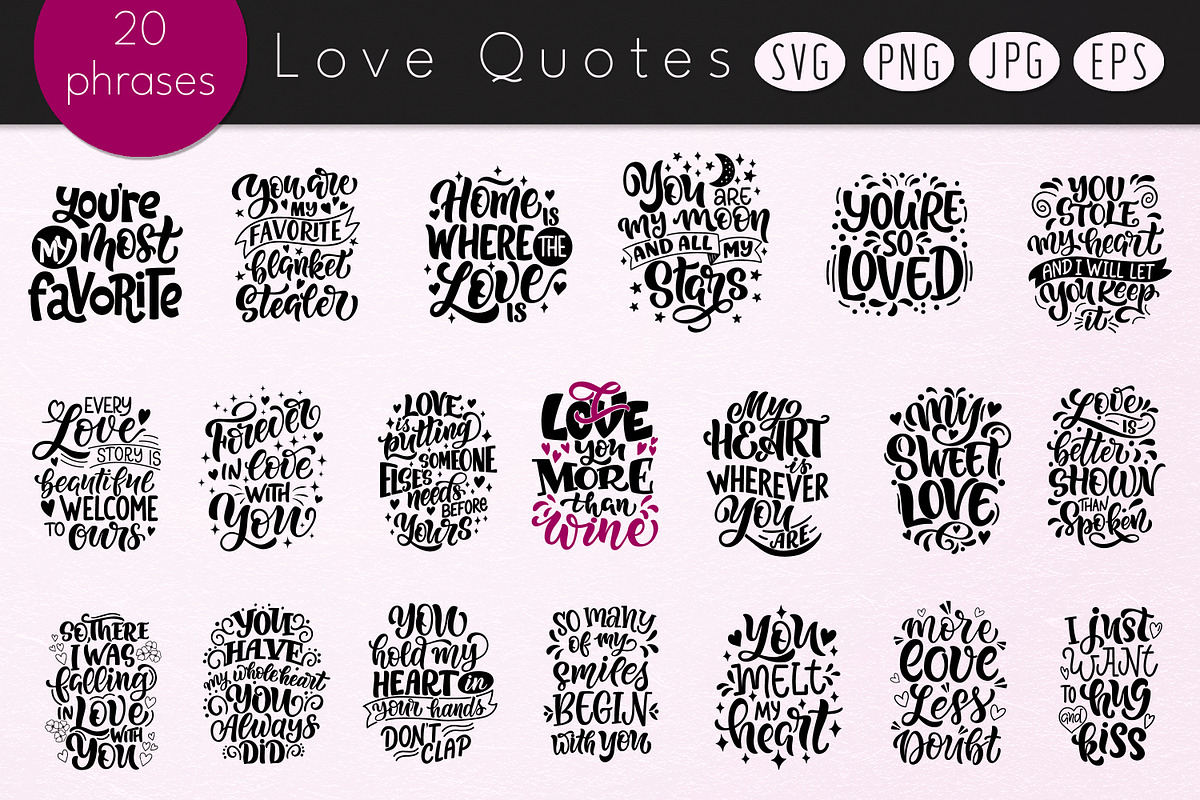 20
phrases
Love Quotes
SVG
PNG
JPG
EPS
you're
MY most
favorite
You are
MY
FAVORITE
blanket
Stealer
Home IS
WHERE THE
Love
IS
You ARE
my moon
AND ALL MY
Stars
YOU'RE
SO
LOVED
YOU
STOLE
my heart
AND I WILL LET
You Keep
it
EVERY
Love
STORY IS
beautiful
WELCOME
TO ours
Forever
IN love
WITH
You
LOVE
is putting
SOMEONE
ELSE'S
needs
BEFORE
Yours
I
LOVE
you
MORE
than
wine
My
HEART
is
WHEREVER
You
ARE
My
SWEET
LOVE
Love
IS
better
SHOWN
THAN
Spoken
SO, THERE
I WAS
falling
IN LOVE
WITH
You
YOU
HAVE
my whole heart
YOU
Always
DID
YOU
hold my
HEART in
your hands
DON'T
CLAP
SO MANY
OF MY
Smiles
BEGIN
with you
You
MELT
MY
heart
more
love
Less
Doubt
I Just
WANT
TO hug
and
kiss